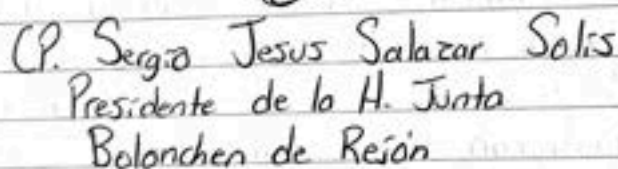 CP. Sergio Jesus Salazar Solis
Presidente de la H. Junta
Bolonchen de Rejón